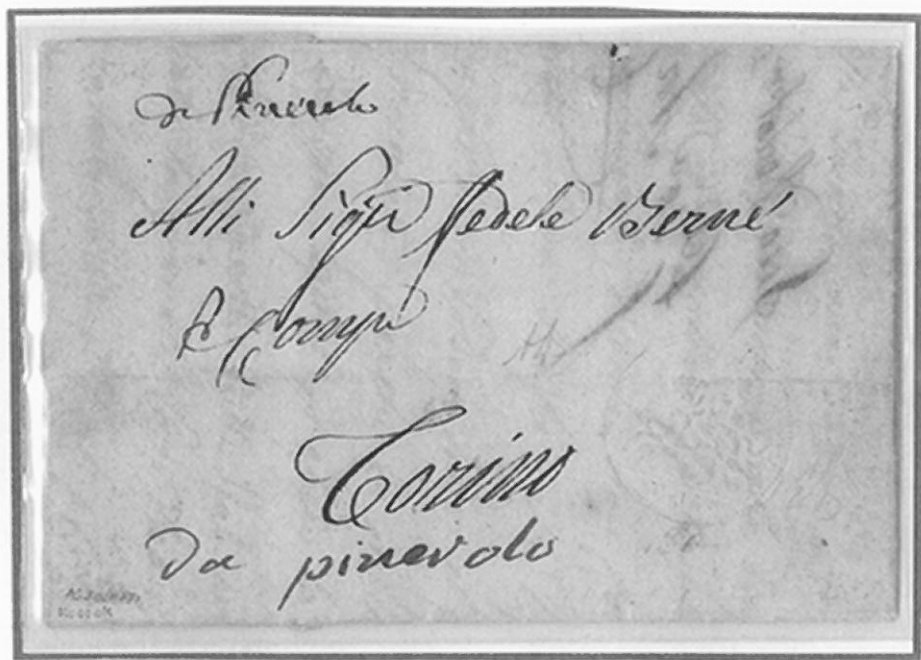 Da Pinerolo
Alli Sigri Fedele Berné
& Compi
Torino
Da pinerolo